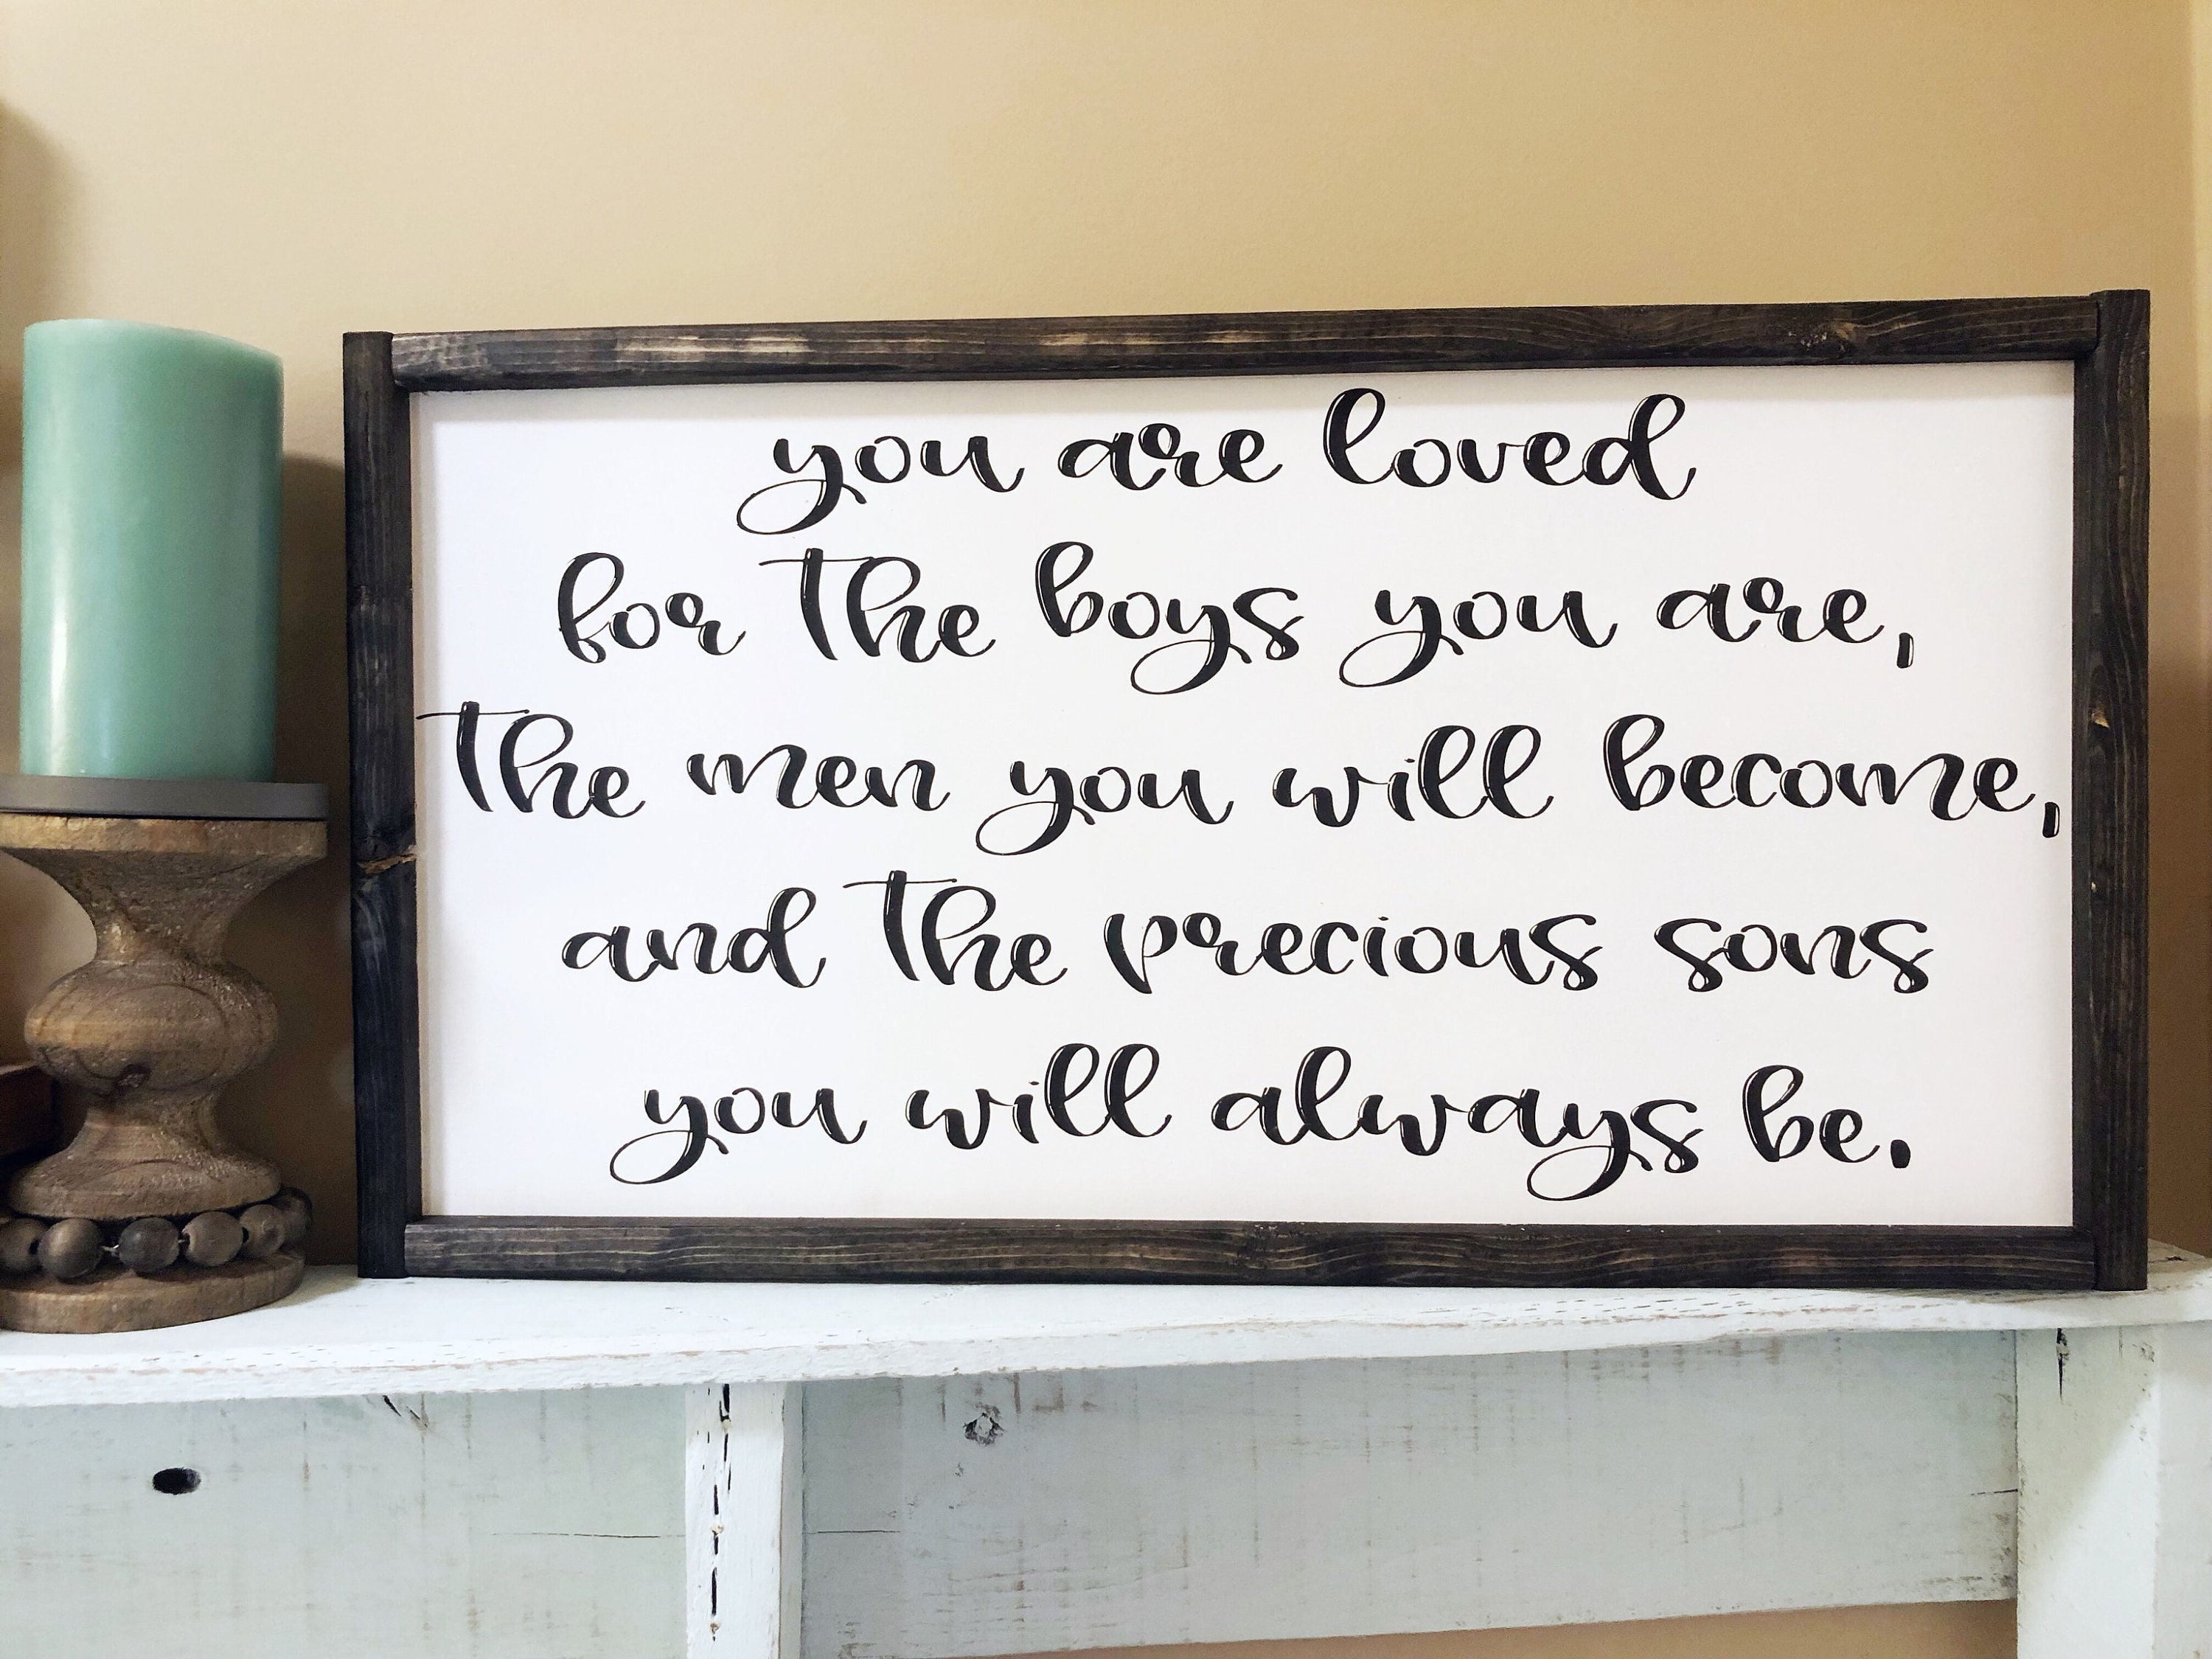 you are loved
for the boys you are,
the men you will become,
and the precious sons
you will always be.